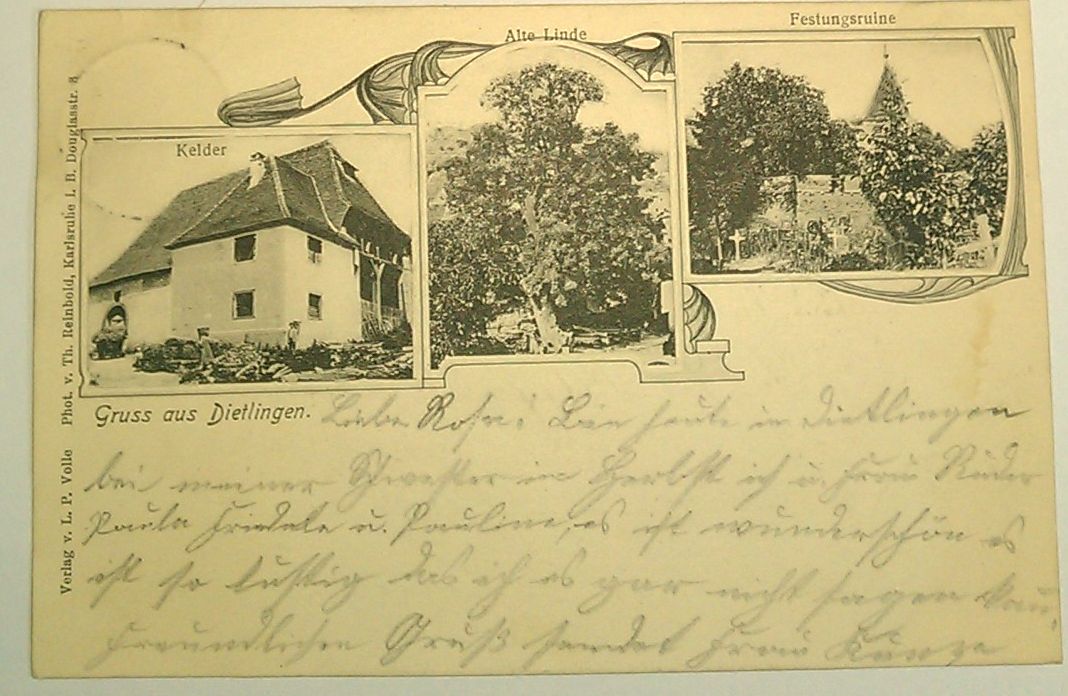 Festungsruine
Alte Linde
Kelder
Phot. v. Th. Reinbold, Karlsruhe i. B. Douglasstr. 8
Verlag v. L. P. Volle
Gruss aus Dietlingen.
Liebe Rosa! Bin heute in Dietlingen
bei meiner Schwester im Herbst ich u. Frau
Paula u. Pauline, es ist wunderschön es
ist so lustig das ich es gar nicht sagen kann.
Freundlichen Gruß sendet Frau Kunze